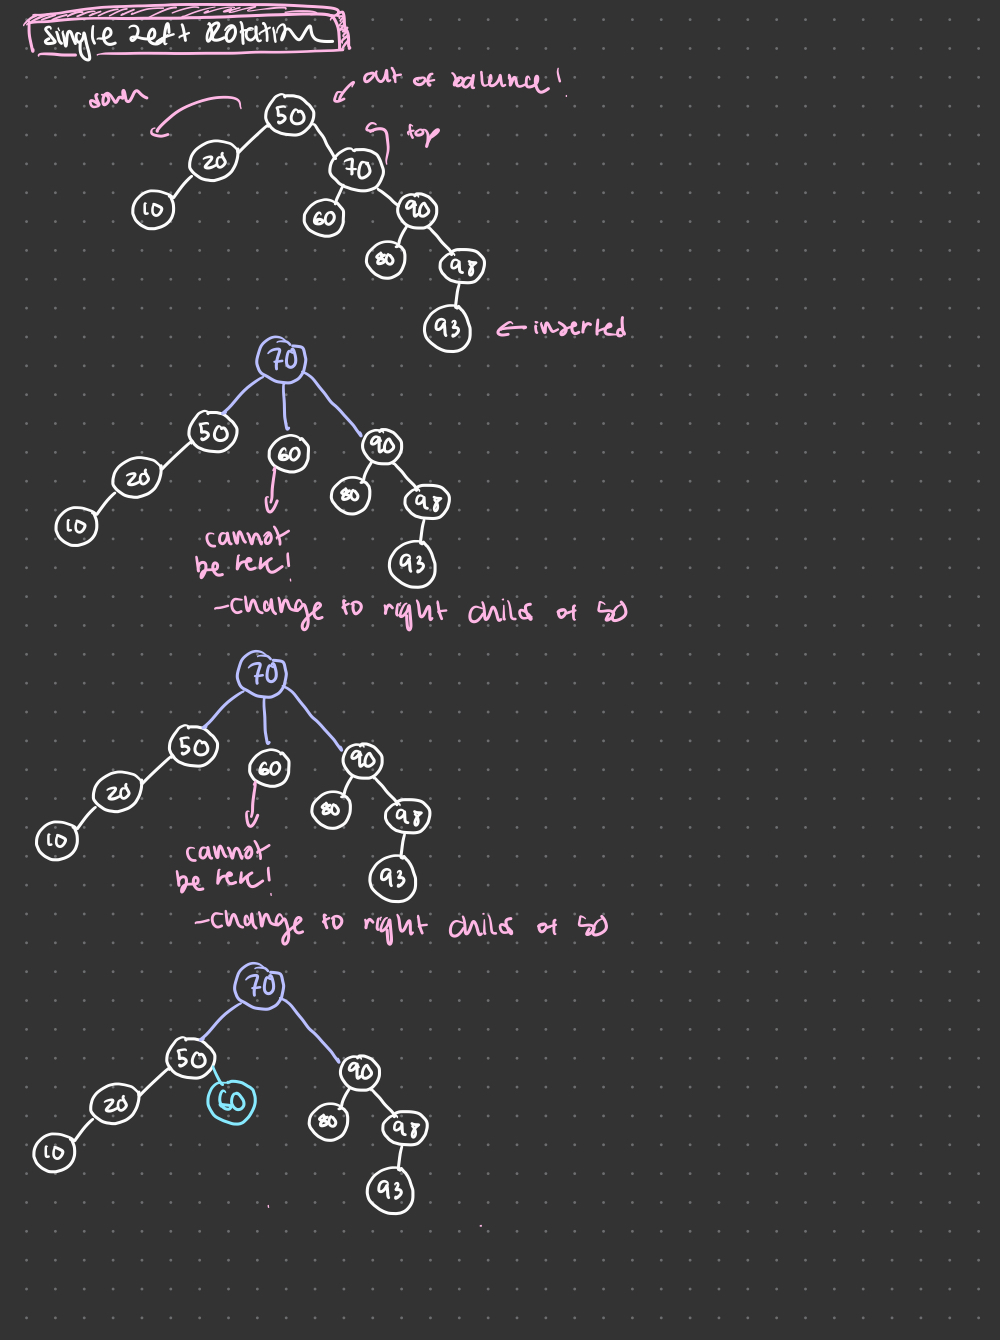 Single Left Rotation
out of balance!
down
50
top
20
70
10
60
90
80
98
93
← inserted
70
50
60
90
20
80
98
10
cannot
be here!
93
-change to right child of 50
70
50
60
90
20
80
98
10
cannot
be here!
93
-change to right child of 50
70
50
90
20
60
80
98
10
93